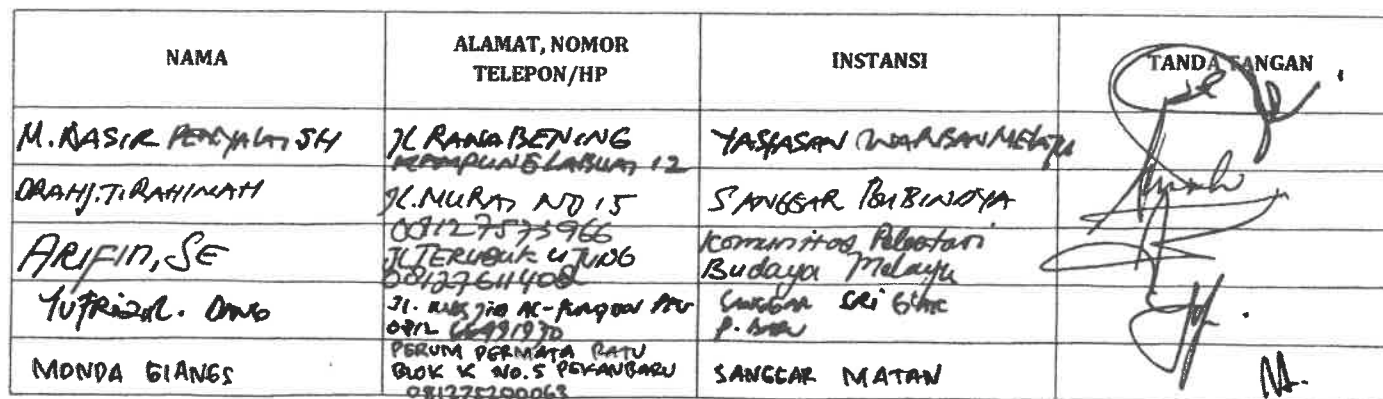 NAMA
ALAMAT, NOMOR
TELEPON/HP
INSTANSI
TANDA TANGAN
M. RASIR PENYALAI SH
JL RAWA BENING
KAMPUNG LABUAI 12
YAYASAN WARISAN MELAYU
DRA HJ. T. RAHIMAH
JL. MURAI NO 15
08127573966
SANGGAR
ARIFIN, SE
JL TERUBUK UJUNG
08127611408
Komunitas Pelestari
Budaya Melayu
YUFRIZAL.
JL.
0812
SANGGAR SRI
P. BARU
MONDA GIANES
PERUM PERMATA RATU
BLOK K NO.5 PEKANBARU
081275200063
SANGGAR MATAN